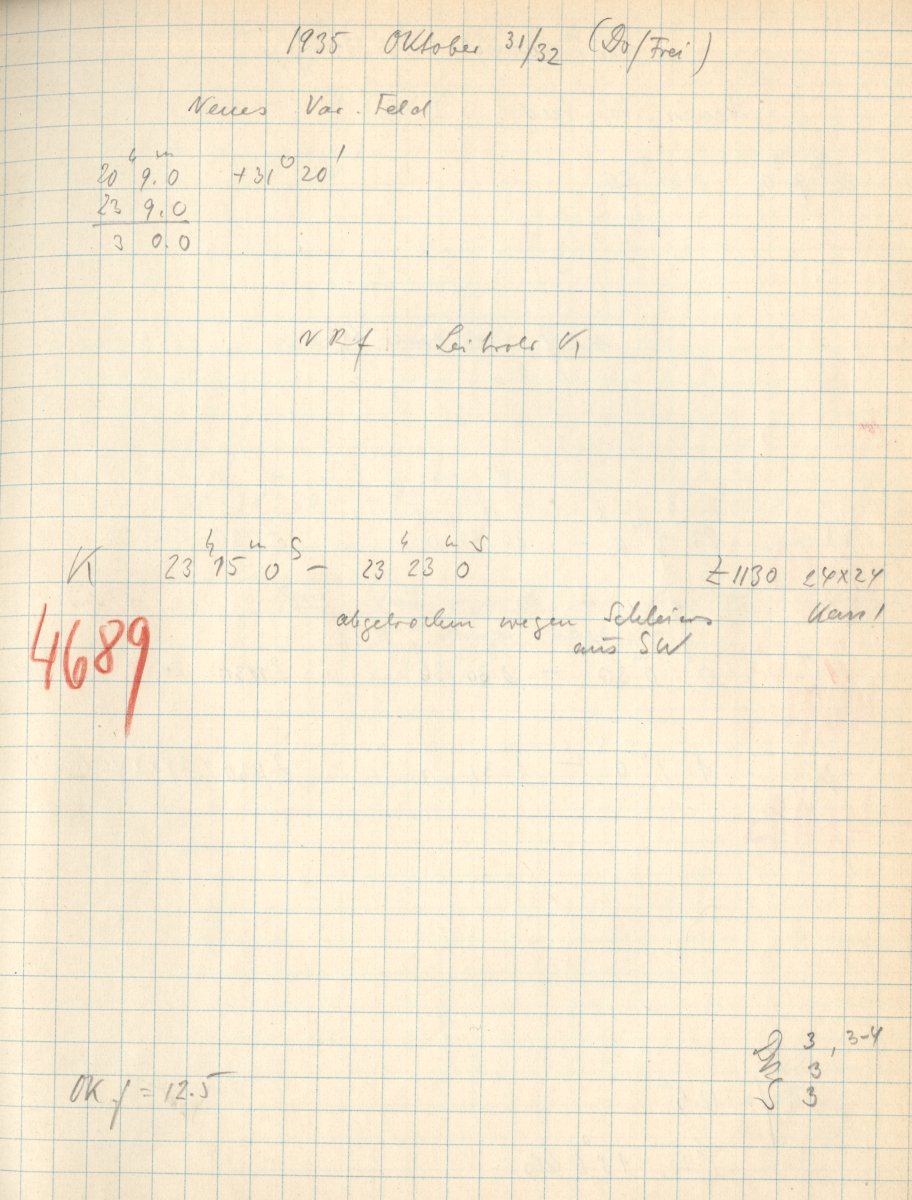 1935 Oktober 31/32 (Do/Frei)
Neues Var. Feld
20ʰ 9.0ᵐ +31° 20'
23 9.0
3 0.0
NRf Leitrohr K
K 23ʰ 15ᵐ 0ˢ – 23ʰ 23ᵐ 0ˢ Z 1130 24x24
abgebrochen wegen Schleiers Kass 1
aus SW
4689
3, 3-4
3
OK f = 12.5
S 3